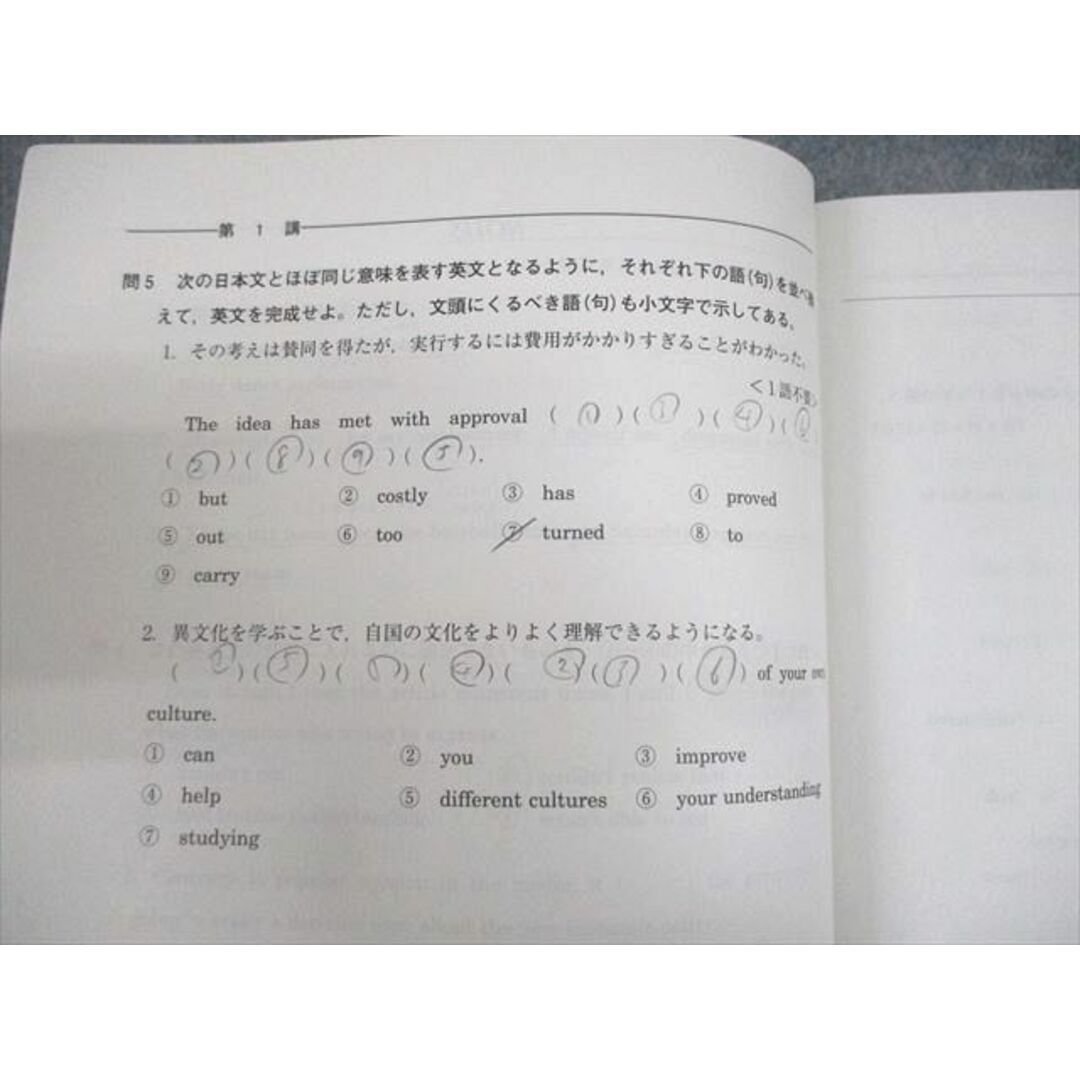 第 1 講
問5 次の日本文とほぼ同じ意味を表す英文となるように，それぞれ下の語(句)を並べ替
えて，英文を完成せよ。ただし，文頭にくるべき語(句)も小文字で示してある。
1. その考えは賛同を得たが，実行するには費用がかかりすぎることがわかった。
＜1語不要＞
The idea has met with approval ( ① )( ① )( ④ )(
( ② )( ⑧ )( ⑨ )( ⑤ ).
① but ② costly ③ has ④ proved
⑤ out ⑥ too ⑦ turned ⑧ to
⑨ carry
2. 異文化を学ぶことで，自国の文化をよりよく理解できるようになる。
( ⑦ )( ⑤ )( ① )( ④ )( ② )( ③ )( ⑥ ) of your own
culture.
① can ② you ③ improve
④ help ⑤ different cultures ⑥ your understanding
⑦ studying